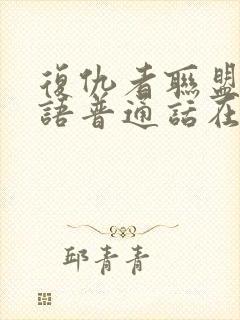 復仇者聯盟
語普通話在
邱青青